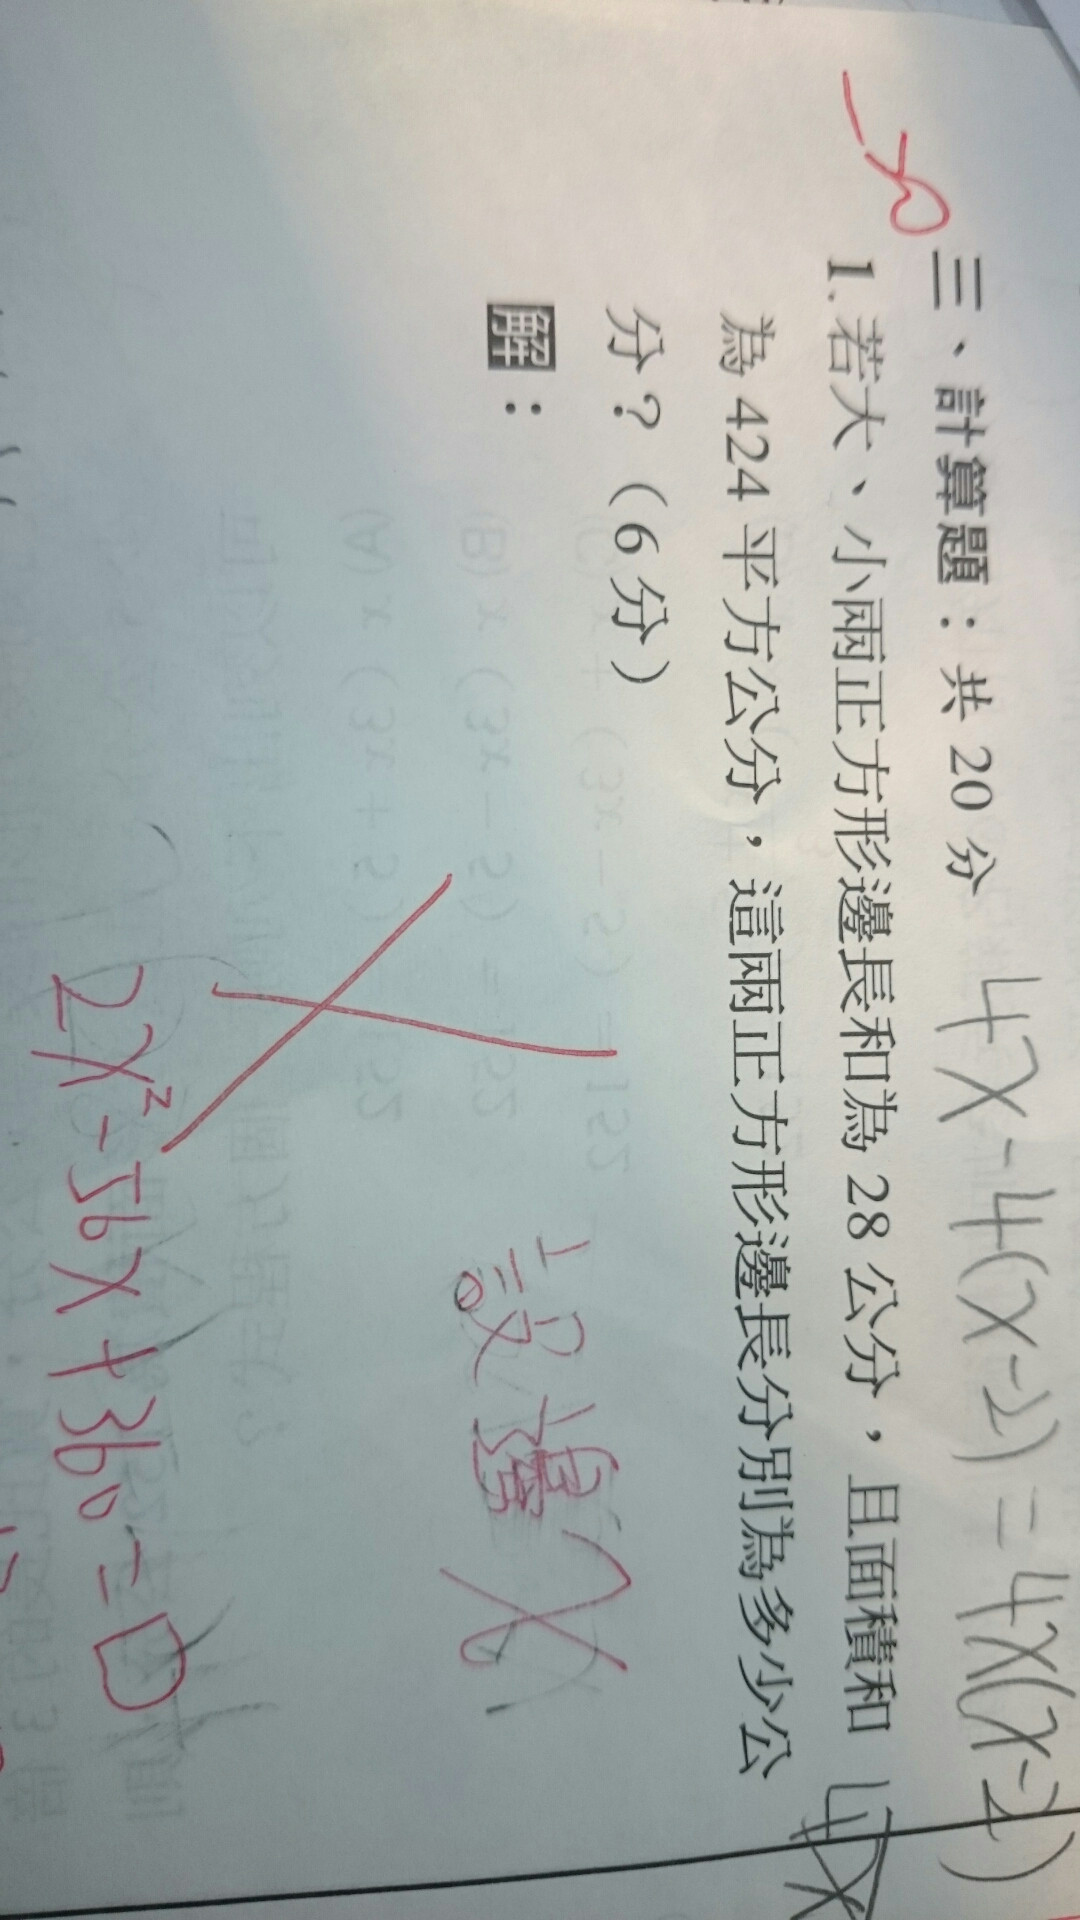 4x-4(x-2)=4x(x-2)
三、計算題：共 20 分
1.若大、小兩正方形邊長和為 28 公分，且面積和
為 424 平方公分，這兩正方形邊長分別為多少公
分？（6 分）
解：
設邊 x
2x²-56x+360=0